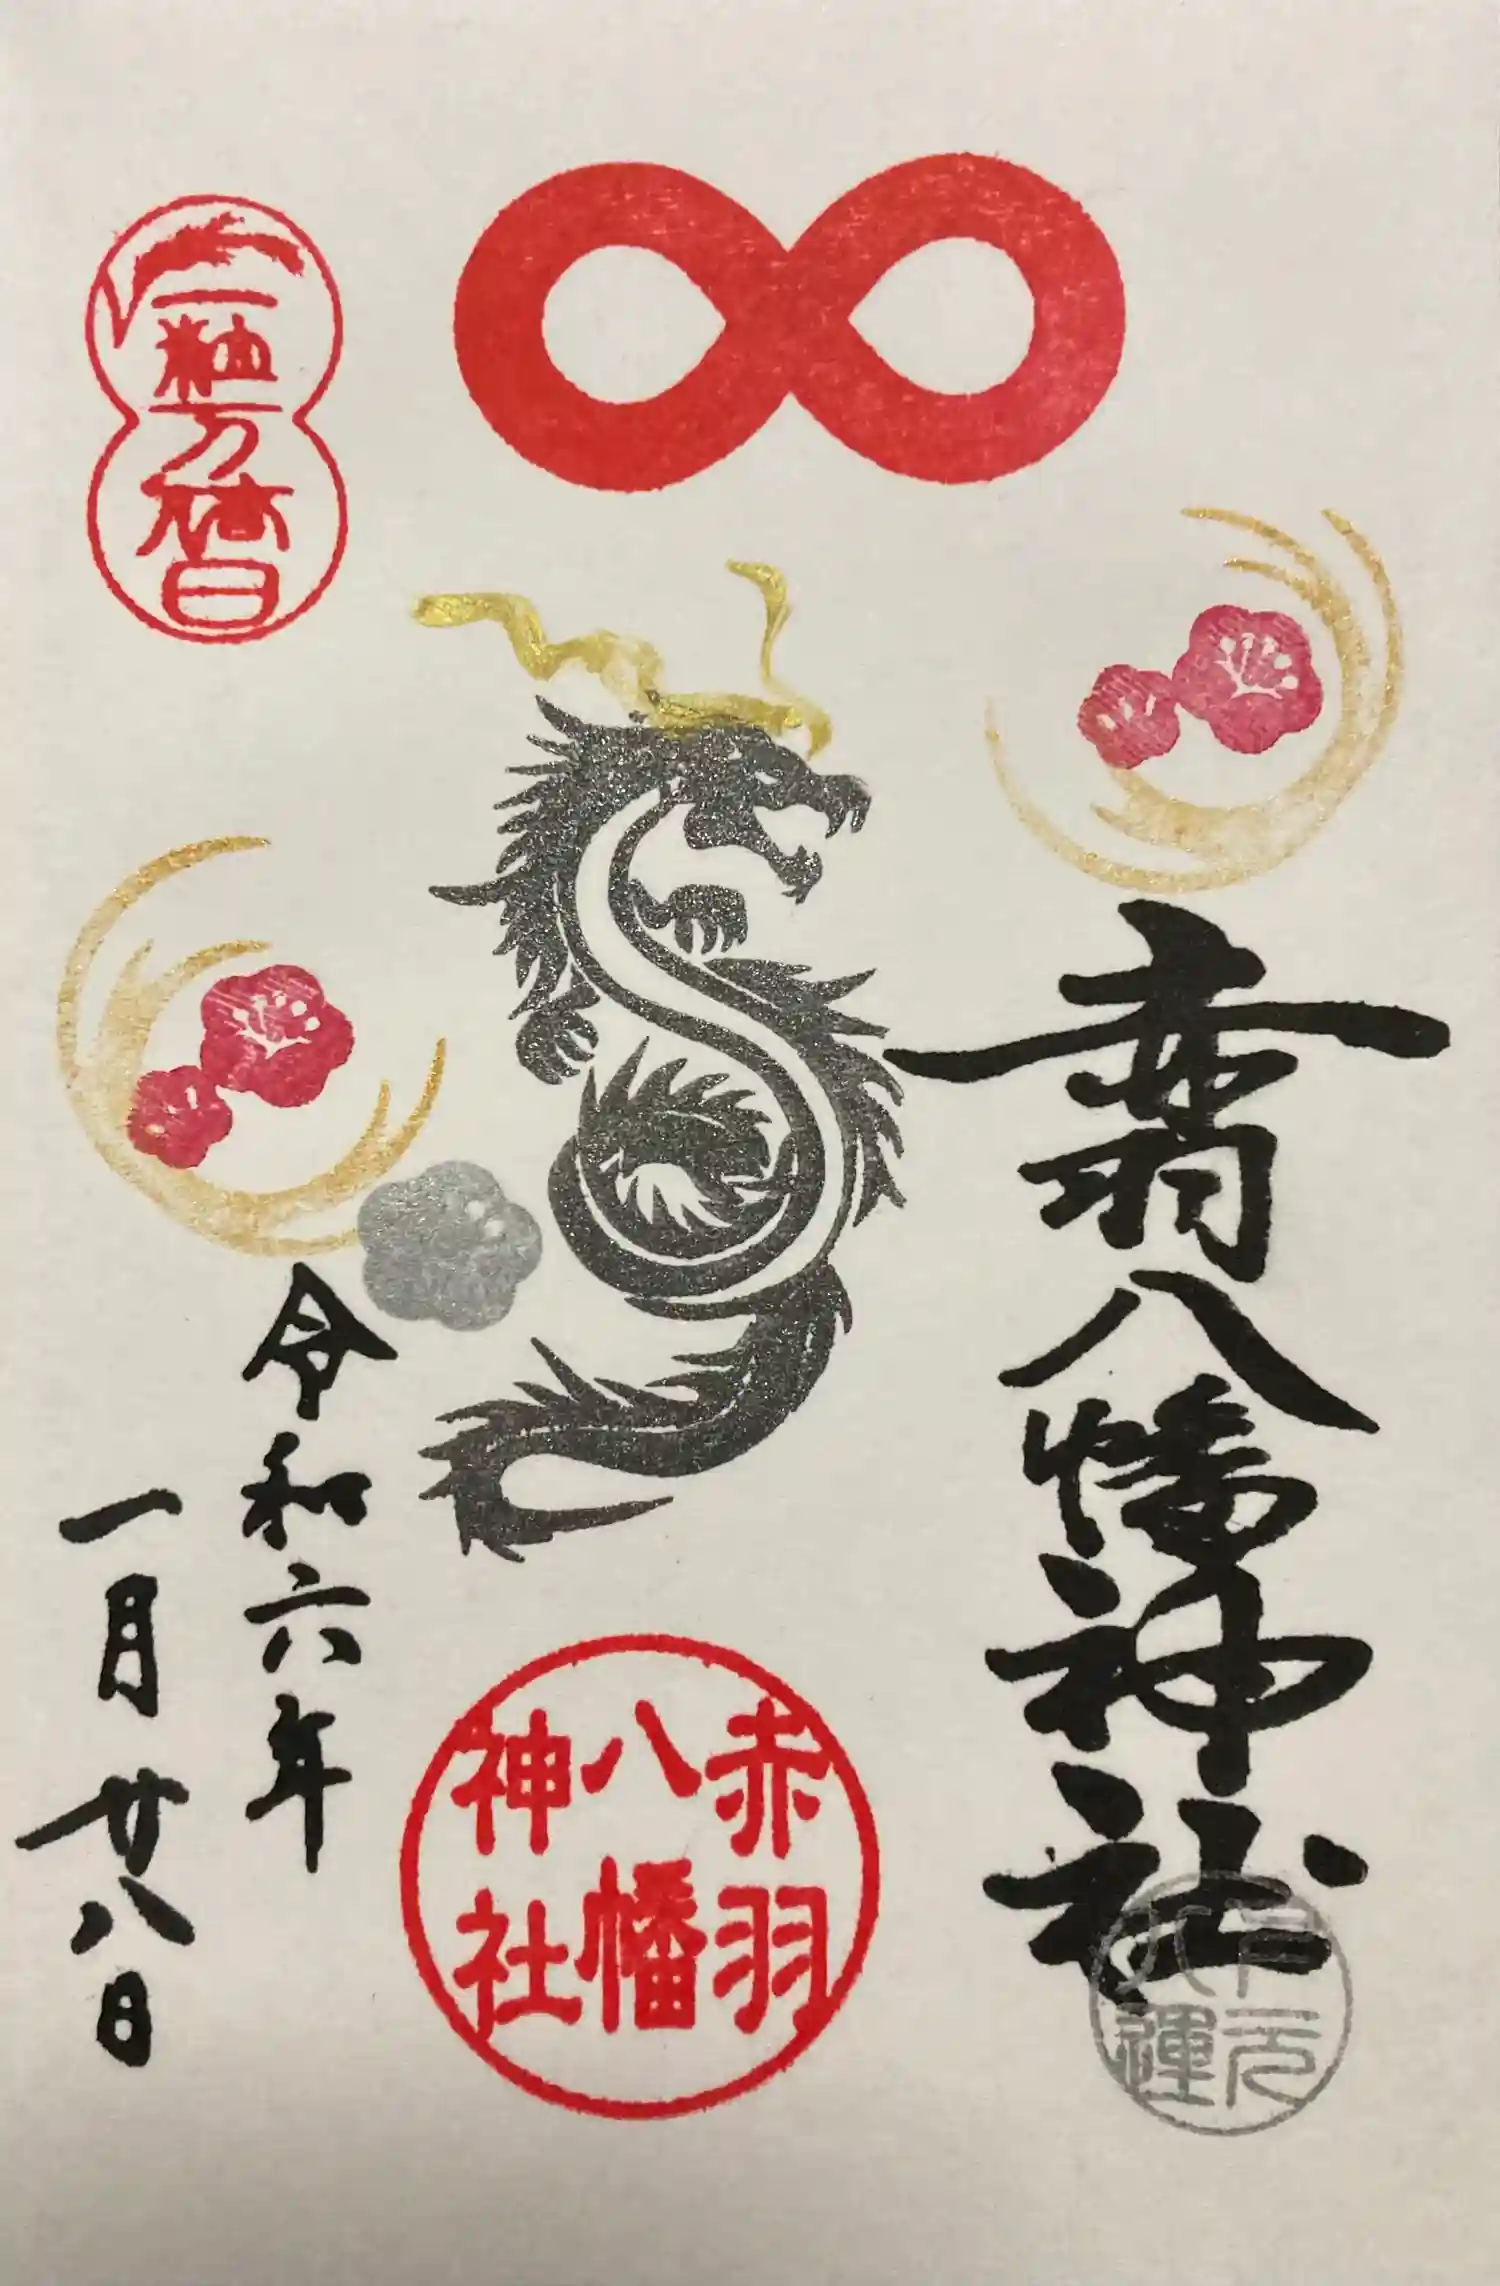 赤羽八幡神社
一粒万倍日
赤羽
八幡
神社
令和六年
一月廿八日